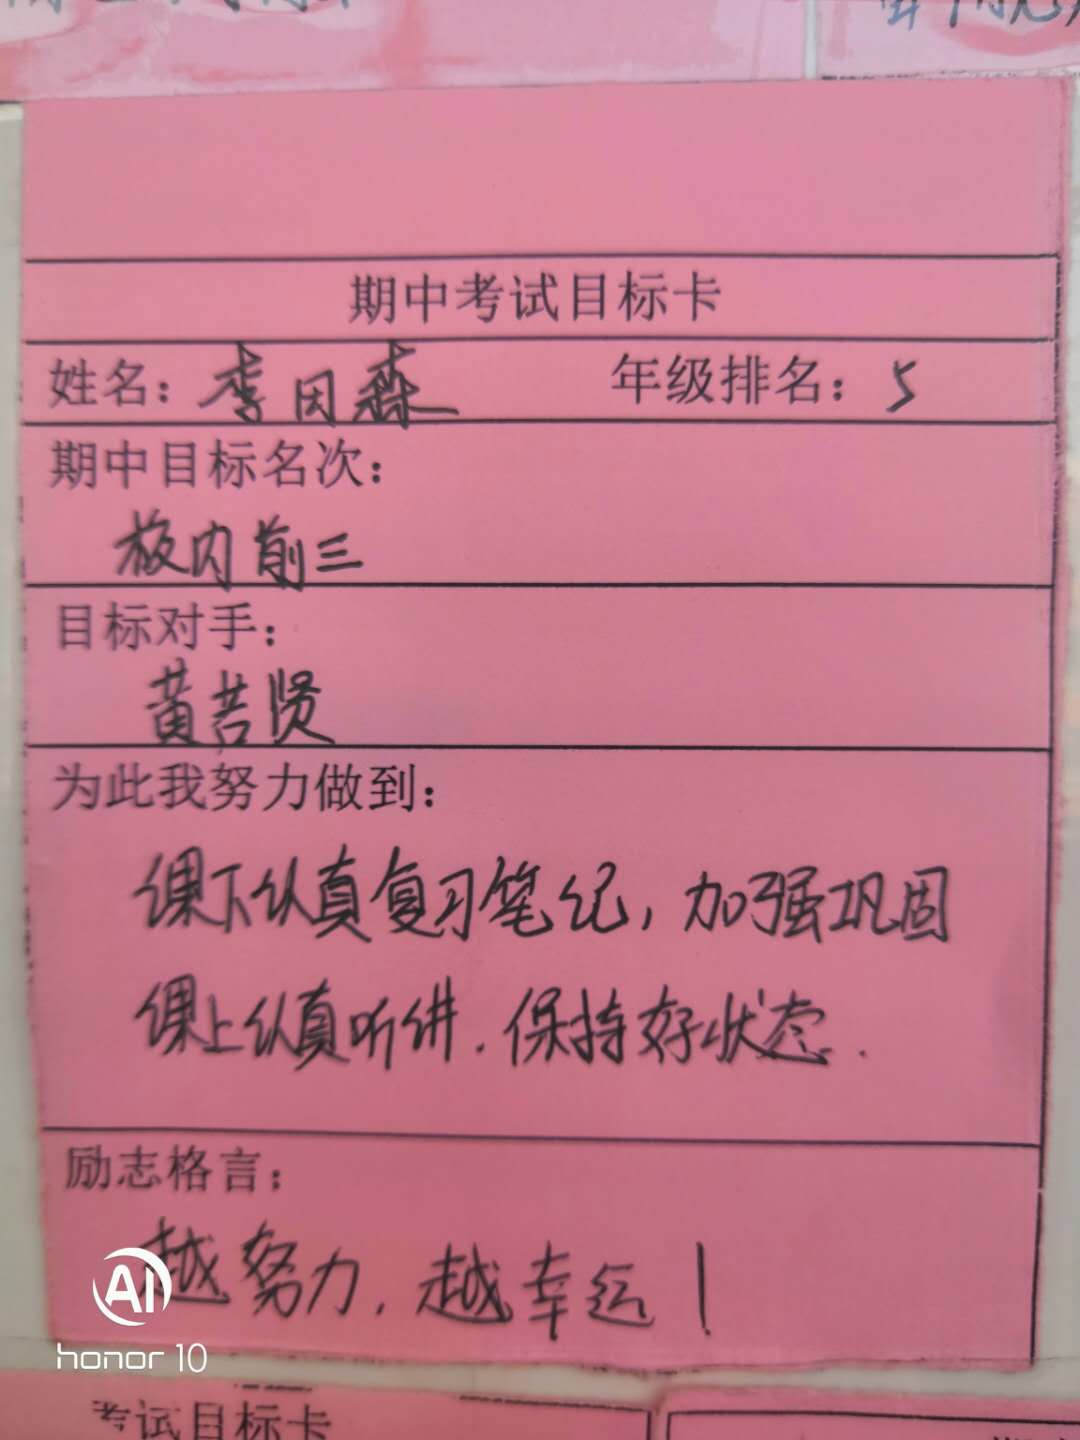 期中考试目标卡
姓名：李因森 年级排名：5
期中目标名次：
校内前三
目标对手：
黄若贤
为此我努力做到：
课下认真复习笔记，加强巩固
课上认真听讲．保持好状态．
励志格言：
越努力，越幸运！
AI
honor 10
考试目标卡